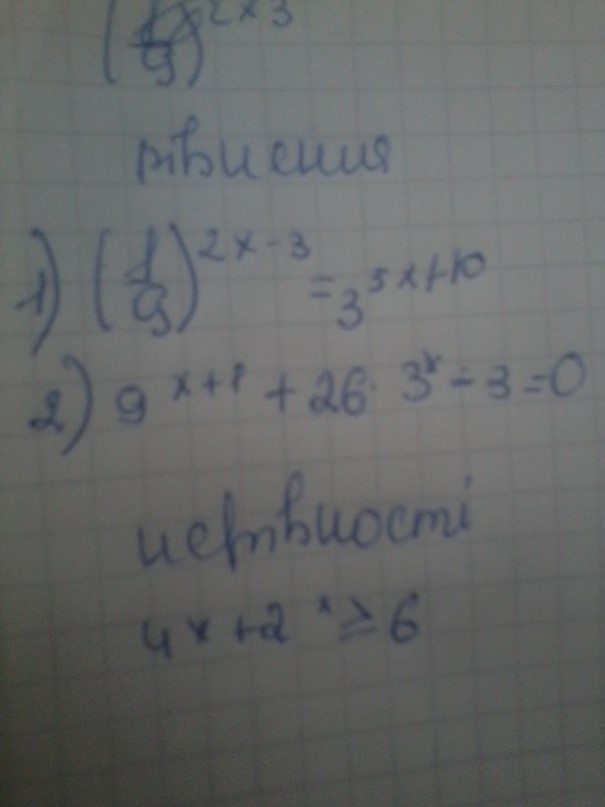 (1/9)^2x3
рівнения
1) (1/9)^2x-3 = 3^5x+10
2) 9^x+1 + 26 · 3^x - 3 = 0
нерівності
4^x + 2^x ≥ 6